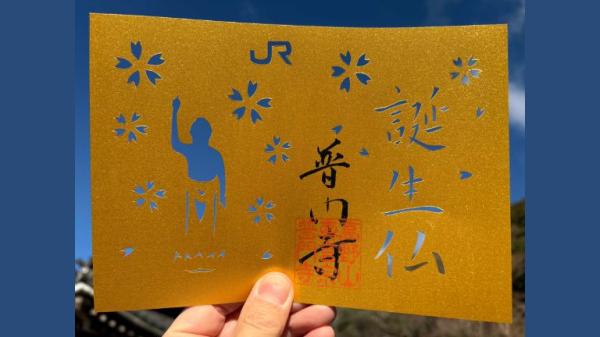 JR
誕生仏
普門寺